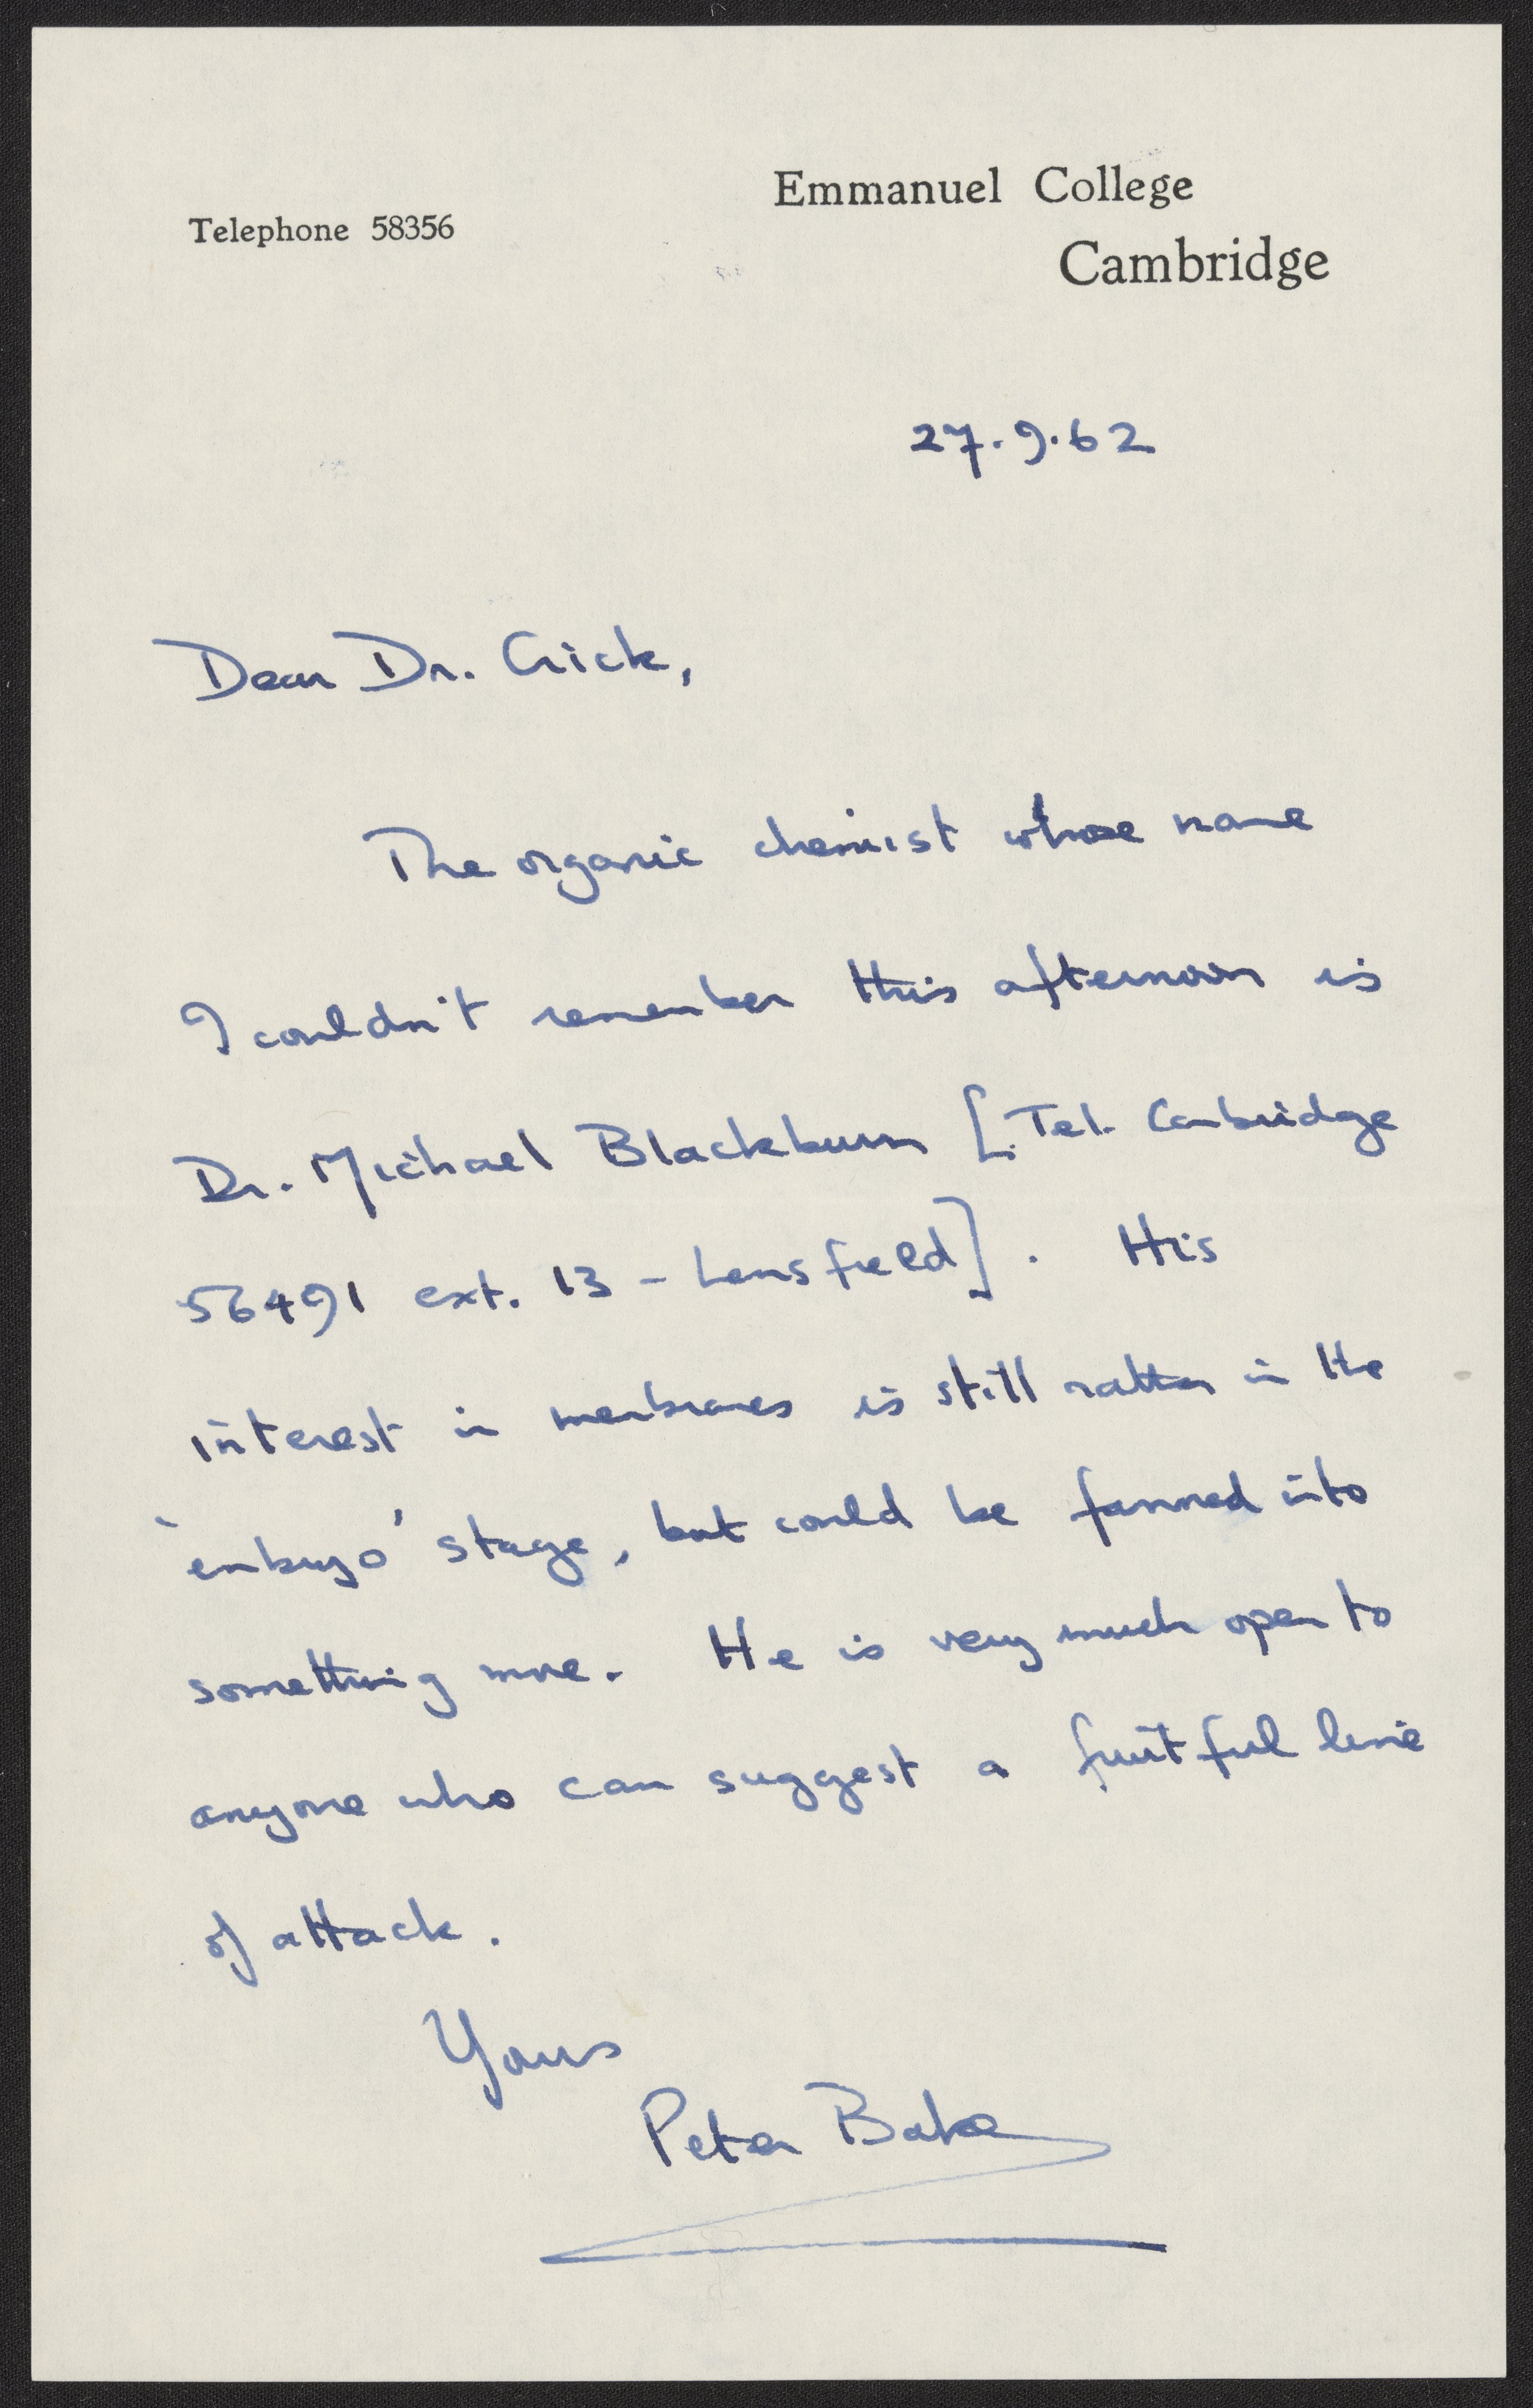 Emmanuel College
Telephone 58356
Cambridge
27.9.62
Dear Dr. Crick,
The organic chemist whose name
I couldn't remember this afternoon is
Dr. Michael Blackburn [Tel. Cambridge
56491 ext. 13 - Lensfield]. His
interest in membranes is still rather in the
'embryo' stage, but could be fanned into
something more. He is very much open to
anyone who can suggest a fruitful line
of attack.
Yours
Peter Baker